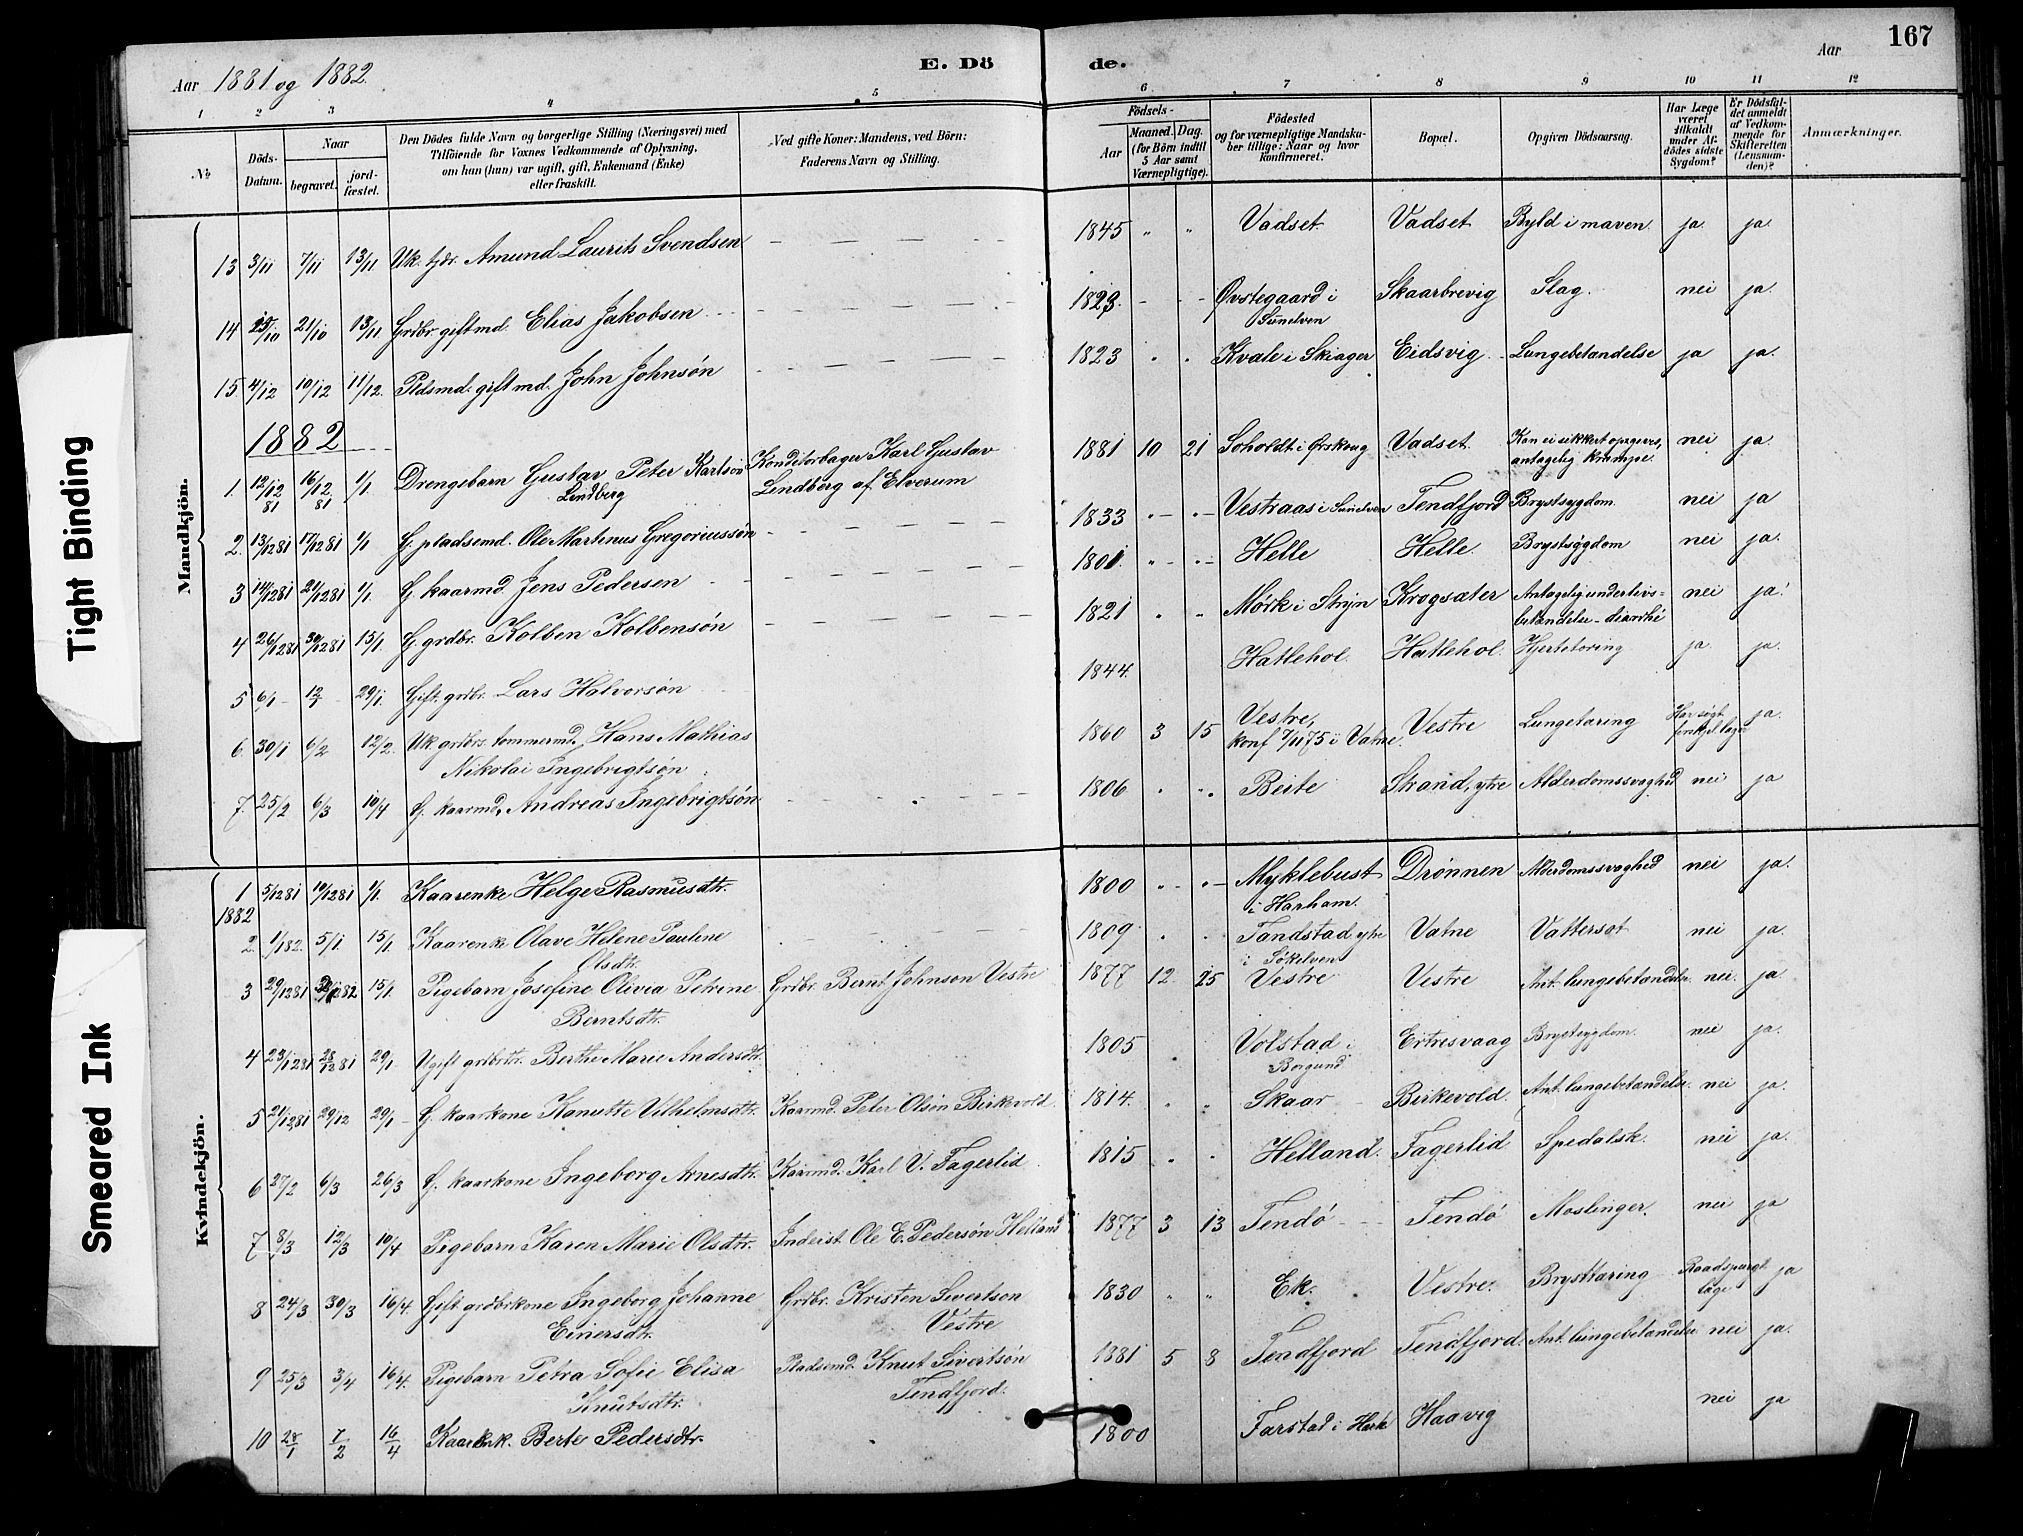 Aar 1881 og 1882.
E. Dö
de.
Aar
167
1 2 3 4 5 6 7 8 9 10 11 12
№
Döds-Datum.
Naar
begravet.
jord-fæstet.
Den Dödes fulde Navn og borgerlige Stilling (Næringsvei) med
Tilföiende for Voxnes Vedkommende af Oplysning,
om han (hun) var ugift, gift, Enkemand (Enke)
eller fraskilt.
Ved gifte Koner: Mandens, ved Börn:
Faderens Navn og Stilling.
Födsels-
Aar
Maaned. Dag.
(for Börn indtil
5 Aar samt
Værnepligtige).
Födested
og for værnepligtige Mandska-
ber tillige: Naar og hvor
konfirmeret.
Bopæl.
Opgiven Dödsaarsag.
Har Læge
været
tilkaldt
under Af-
dödes sidste
Sygdom?
Er Dödsfal-
det anmeldt
af Vedkom-
mende for
Skifteretten
(Lensman-
den)?
Anmærkninger.
Mandkjön.
13 3/11 7/11 13/11 Uk. fdr. Amund Laurits Svendsen 1845 Vadset Vadset Byld i maven. ja. ja.
14 21/10 13/11 Grdbr. gift md. Elias Jakobsen Øvstegaard i Sunelven Skaarbrevig Slag. nei ja.
15. 4/12 10/12 11/12. Pldsmd. gift md. John Johnsön 1823 Kvale i Skiager Eidsvig Lungebetændelse ja ja.
1882
1. 12/12 81 16/12 81 1/1. Drengebarn Gustav Peter Karlsön Lindberg Konditorbager Karl Gustav Lindberg af Elverum 1881 10 21 Soholdt i Ørskoug Vadset. Kan ei sikkert opgeves, antagelig krampe. nei ja.
2. 13/12 81 17/12 81 1/1 G. pladsemd. Ole Martinus Gregoriussön 1833 Vestraas i Sunelven Tendfjord Brystsygdom. nei ja
3 14/12 81 21/12 81 1/1. G. kaarmd. Jens Pedersen 1801. Helle Helle. Brystsygdom nei ja.
4 26/12 81 30/12 81 15/1. G. grdbr. Kolben Kolbensön 1821 Mørk i Stryn Krogsæter Antagelig underlivs-betændelse - diarrhé nei ja.
5 6/1 12/1 29/1. Gift. grdbr. Lars Halvorsön 1844. Hatlehol. Hatlehol. Hjertetæring ja. ja.
6. 30/1 6/2 12/2. Uk. grdbrs. tømmermd. Hans Mathias Nikolai Ingebrigtsön 1860 3 15 Vestre, konf. 7/11 75 i Vatne. Vestre Lungetæring Har søgt ja.
7. 25/2 6/3 10/4 G. kaarmd. Andreas Ingebrigtsön 1806 Beite Strand, ytre Alderdomssvaghed nei ja
Kvindekjön.
1 5/12 81 10/12 81 1/1. Kaarenke Helge Rasmusdtr. 1800 Myklebust i Harham. Drönnen Alderdomssvaghed nei ja.
1882
2. 1/1 82. 5/1 15/1 Kaarenke Olave Helene Pauline Olsdtr. 1809 Tandstad ytre i Sökelven Vatne Vattersot nei ja.
3 29/12 81 15/1. Pigebarn Josefine Olivia Petrine Berntsdtr. Grdbr. Bernt Johnson Vestre 1877 12. 25 Vestre Vestre Ant. lungebetændelse. nei. ja.
4 23/12 81 28/12 81 29/1. Ugift grdbrdtr. Berthe Marie Andersdtr. 1805 Volstad i Borgund Ertresvaag Brystsygdom. nei ja.
5 21/12 81 29/12 29/1 G. kaarkone Kanutte Vilhelmsdtr. Kaarmd. Peter Olsön Birkevold. 1814. Skaar Birkevold. Ant. lungebetændelse. nei ja.
6 27/2 6/3 26/3 G. kaarkone Ingeborg Arnesdtr. Kaarmd. Karl V. Fagerlid 1815 Helland. Fagerlid Spedalsk. nei ja.
7 8/3 12/3 10/4 Pigebarn Karen Marie Olsdtr. Inderist Ole E. Pedersön Helland 1877 3 13 Tendö Tendö Moslinger. nei ja
8 24/3 30/3 16/4 Gift grdbrkone Ingeborg Johanne Einersdtr. Grdbr. Kristen Sivertson Vestre 1830 Ek. Vestre. Brysttæring Raadspurgt læge ja
9 25/3 3/4 16/4. Pigebarn Petra Sofie Elisa Knutsdtr. Pladsemd. Knut Sivertsön Tendfjord. 1881 5 8 Tendfjord Tendfjord. Ant. lungebetændelse nei ja.
10 28/1 7/2 16/4 Kaarenk. Berte Pedersdtr. 1800 Farstad i Haavig nei ja
Tight Binding
Smeared Ink